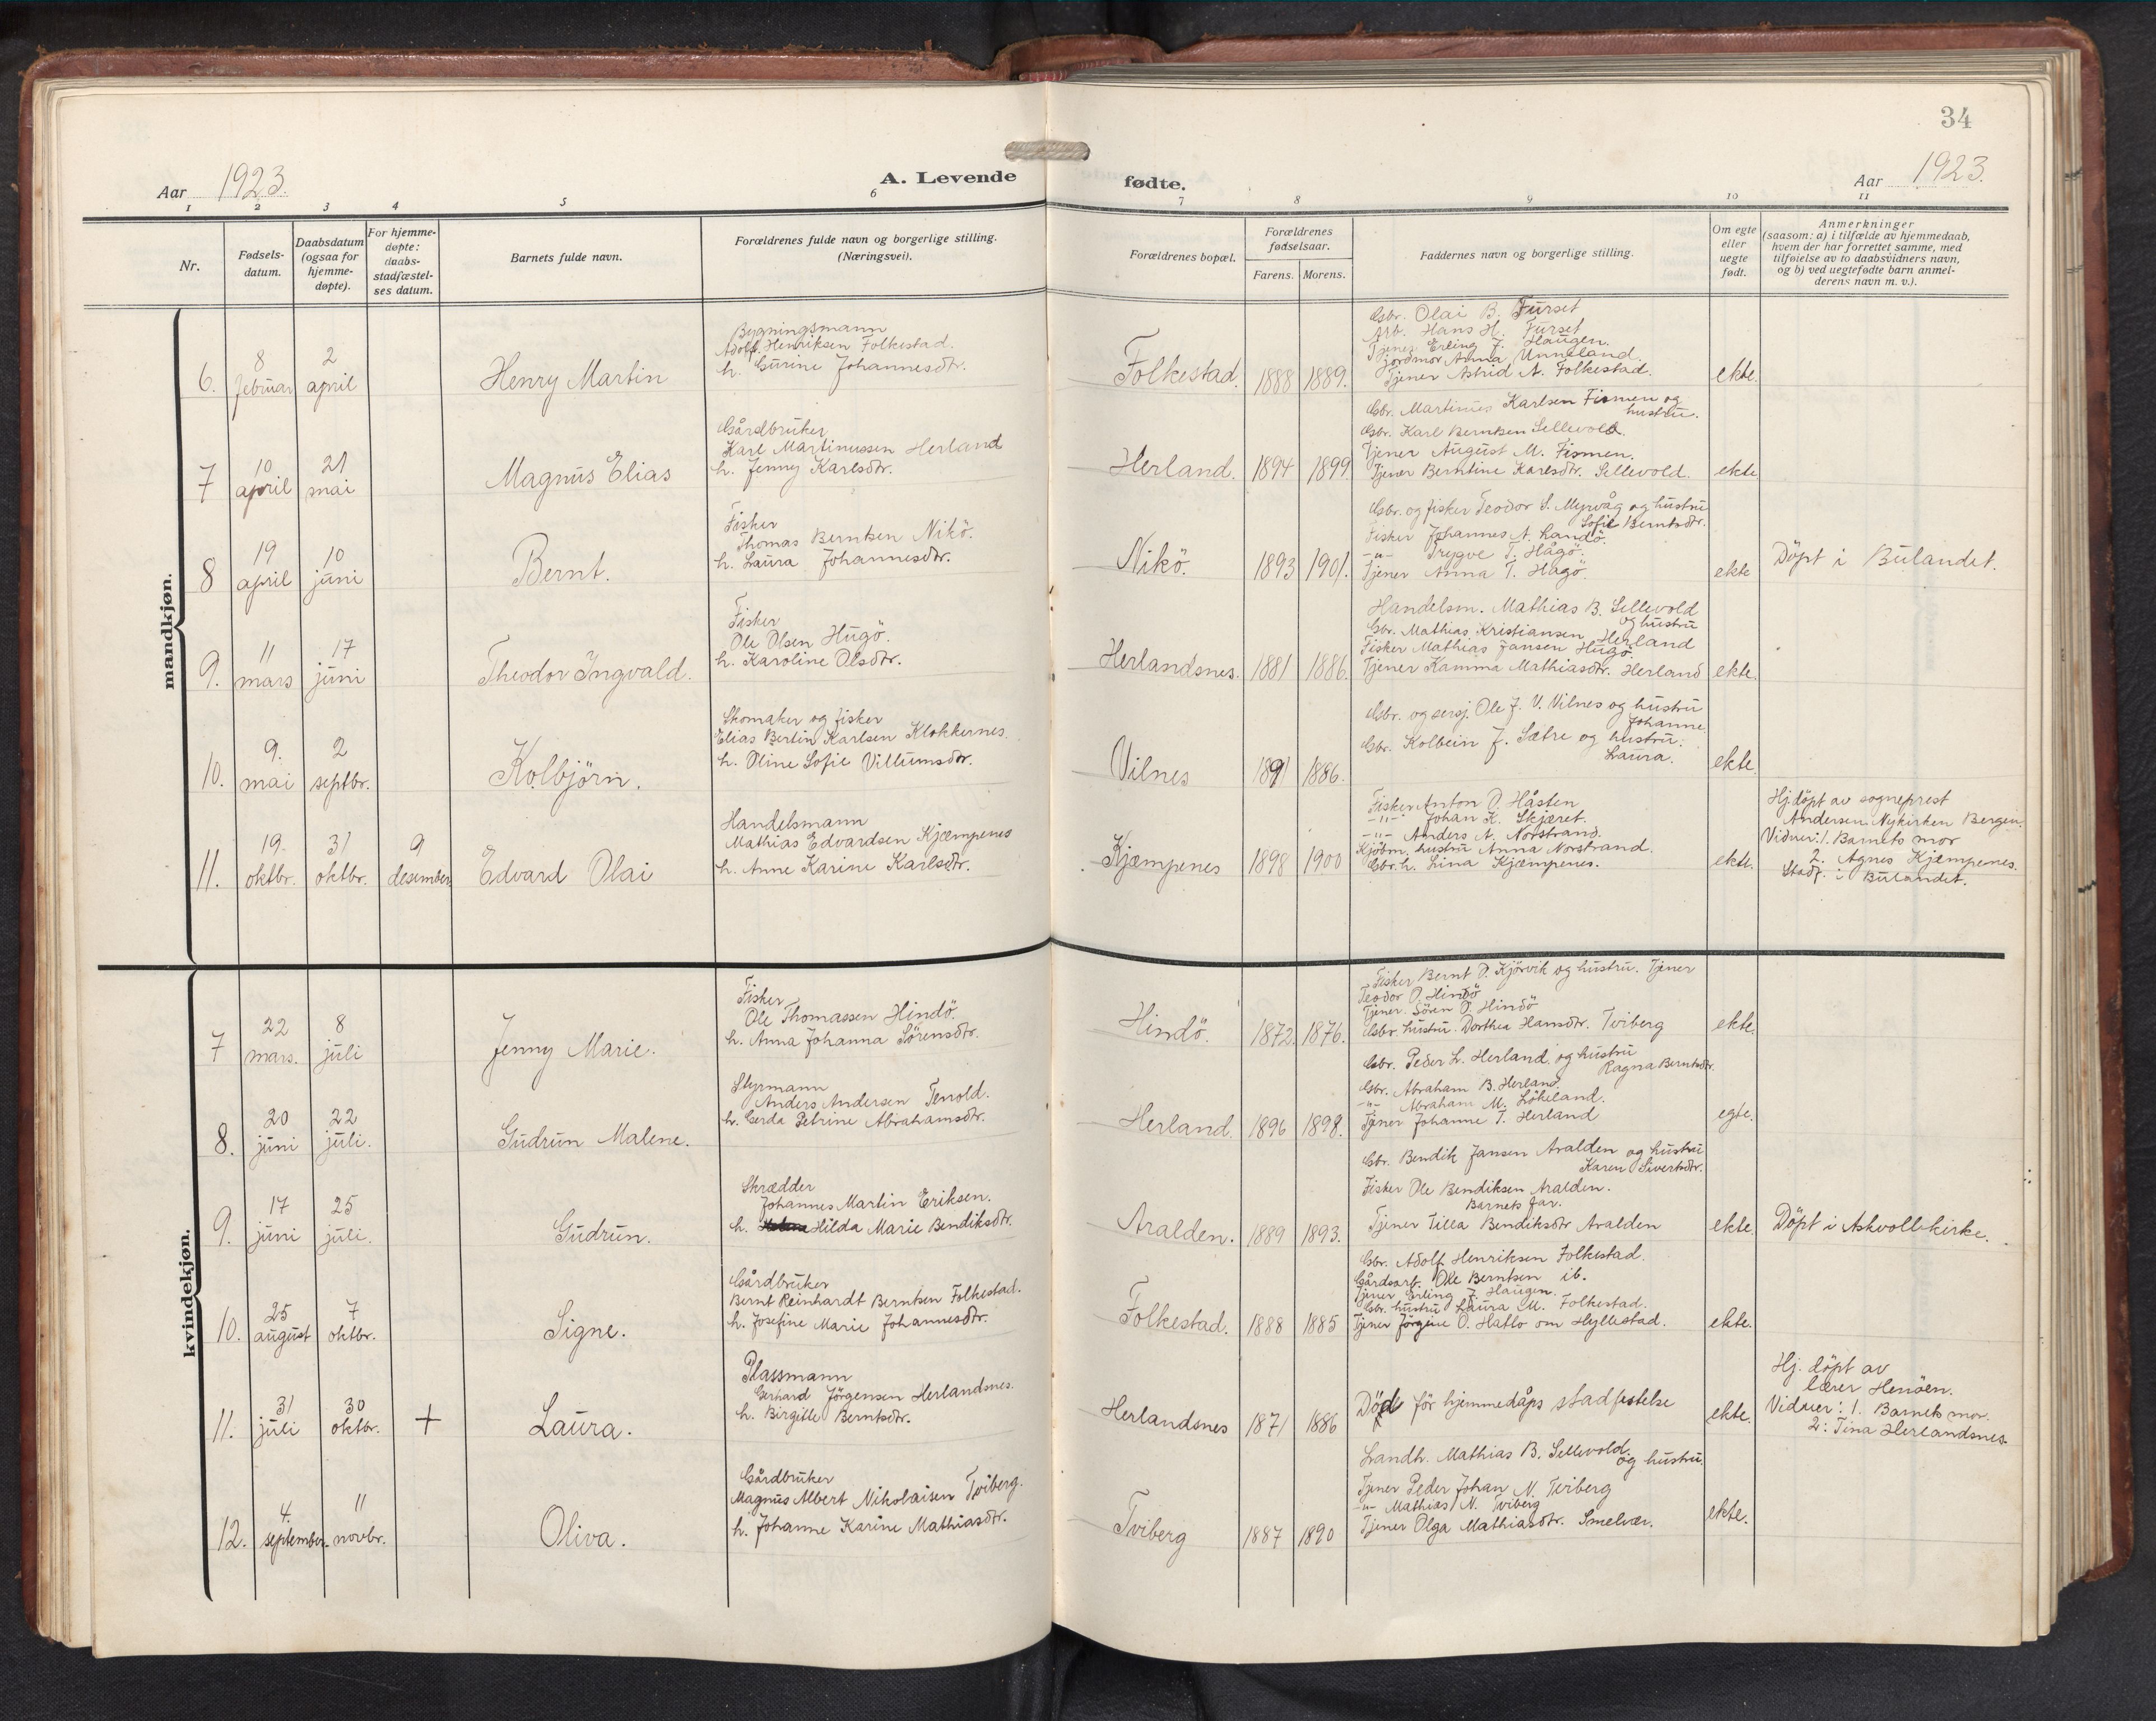 34
Aar 1923.
A. Levende
fødte.
Aar 1923.
1 2 3 4 5 6 7 8 9 10 11
Nr.
Fødsels-
datum.
Daabsdatum
(ogsaa for
hjemme-
døpte).
For hjemme-
døpte:
daabs-
stadfæstel-
ses datum.
Barnets fulde navn.
Forældrenes fulde navn og borgerlige stilling.
(Næringsvei).
Forældrenes bopæl.
Forældrenes
fødselsaar.
Farens. Morens.
Faddernes navn og borgerlige stilling.
Om egte
eller
uegte
født.
Anmerkninger
(saasom: a) i tilfælde av hjemmedaab,
hvem der har forrettet samme, med
tilføielse av to daabsvidners navn,
og b) ved uegtefødte barn anmel-
derens navn m. v.).
mandkjøn.
6.
8
februar
2
april
Henry Martin
Bygningsmann
Adolf Henriksen Folkestad.
h. Gurine Johannesdtr.
Folkestad.
1888
1889.
Gbr. Olai B. Furset
Arb. Hans H. Furset
Tjener Erling J. Haugen.
Jordmor Anna Unneland.
Tjener Astrid A. Folkestad.
ekte.
7
10
april
21
mai
Magnus Elias
Gårdbruker
Karl Martinussen Herland
h. Jenny Karlsdtr.
Herland.
1894
1899
Gbr. Martinus Karlsen Fismen og
hustru.
Gbr. Karl Berntsen Sellevold.
Tjener August M. Fismen.
Tjener Berntine Karlsdtr. Sellevold.
ekte
8
19
april
10
juni
Bernt.
Fisker
Thomas Berntsen Nikö.
h. Laura Johannesdtr.
Nikö.
1893
1901.
Gbr. og fisker Teodor S. Myrvåg og hustru
Sofie Berntsdtr.
Fisker Johannes A. Landö.
-"- Trygve T. Hågö.
Tjener Anna T. Hågö.
ekte
Döpt i Bulandet.
9.
11
mars
17
juni
Theodor Ingvald.
Fisker
Ole Olsen Hugö.
h. Karoline Olsdtr.
Herlandsnes.
1881
1886.
Handelsm. Mathias B. Sellevold
og hustru
Gbr. Mathias Kristiansen Herland
Fisker Mathias Jansen Hugö.
Tjener Kamma Mathiasdtr. Herland
ekte.
10.
9.
mai
2
septbr.
Kolbjörn.
Skomaker og fisker
Elias Bertin Karlsen Klokkernes.
h. Oline Sofie Villumsdtr.
Vilnes
1891
1886.
Gbr. og sersj. Ole J. V. Vilnes og hustru
Johanne
Gbr. Kolbein J. Sætre og hustru:
Laura.
ekte.
11.
19.
oktbr.
31
oktbr.
9
desember
Edvard Olai
Handelsmann
Mathias Edvardsen Kjæmpenes
h. Anne Karine Karlsdtr.
Kjæmpenes
1898
1900
Fisker Anton O. Håsten
-"- Johan K. Skjæret.
-"- Anders A. Norstrand.
Kjöbm. hustru Anna Norstrand.
Gbr. h. Lina Kjæmpenes.
ekte.
Hj. döpt av sogneprest
Andersen, Nykirken Bergen.
Vidner: 1. Barnets mor
2. Agnes Kjæmpenes.
Stadf. i Bulandet.
kvindekjøn.
7
22
mars.
8
juli
Jenny Marie.
Fisker
Ole Thomassen Hindö.
h. Anna Johanna Sörensdtr.
Hindö.
1872.
1876.
Fisker Bernt O. Kjörvik og hustru. Tjener
Teodor O. Hindö
Tjener. Sören O. Hindö
Gbr. hustru. Dorthea Hansdtr. Tviberg
ekte.
8.
20
juni
22
juli.
Gudrun Malene.
Styrmann
Anders Andersen Tenold.
h. Gerda Petrine Abrahamsdtr.
Herland.
1896
1898.
Gbr. Peder L. Herland. og hustru
Ragna Berntsdtr.
Gbr. Abraham B. Herland.
-"- Abraham M. Lökeland.
Tjener Johanne T. Herland
egte.
9.
17
juni
25
juli.
Gudrun.
Skrædder
Johannes Martin Eriksen.
h. Hilda Marie Bendiksdtr.
Aralden.
1889
1893.
Gbr. Bendik Jansen Aralden og hustru
Karen Sivertsdtr.
Fisker Ole Bendiksen Aralden.
Barnets far.
Tjener Tilla Bendiksdtr Aralden
ekte.
Döpt i Askvoll kirke.
10.
25
august
7
oktbr.
Signe.
Gårdbruker
Bernt Reinhardt Berntsen Folkestad.
h. Josefine Marie Johannesdtr.
Folkestad.
1888
1885
Gbr. Adolf Henriksen Folkestad.
Gårdsarb. Ole Berntsen ib.
Tjener Erling J. Haugen.
Gbr. hustru Laura M. Folkestad.
Tjener Jörgine O. Hatlö om Hyllestad.
ekte.
11.
31
juli
30
oktbr.
+
Laura.
Plassmann
Gerhard Jörgensen Herlandsnes.
h. Birgitte Berntsdtr.
Herlandsnes
1871
1886
Död för hjemmedåps stadfestelse
ekte.
Hj. döpt av
lærer Henöen.
Vidner: 1. Barnets mor.
2: Tina Herlandsnes.
12.
4.
september.
11
novbr.
Oliva.
Gårdbruker
Magnus Albert Nikolaisen Tviberg.
h. Johanne Karine Mathiasdtr.
Tviberg
1887
1890
Landh. Mathias B. Sellevold.
og hustru.
Tjener Peder Johan N. Tviberg
-"- Mathias N. Tviberg
Tjener Olga Mathiasdtr. Smelvær.
ekte.